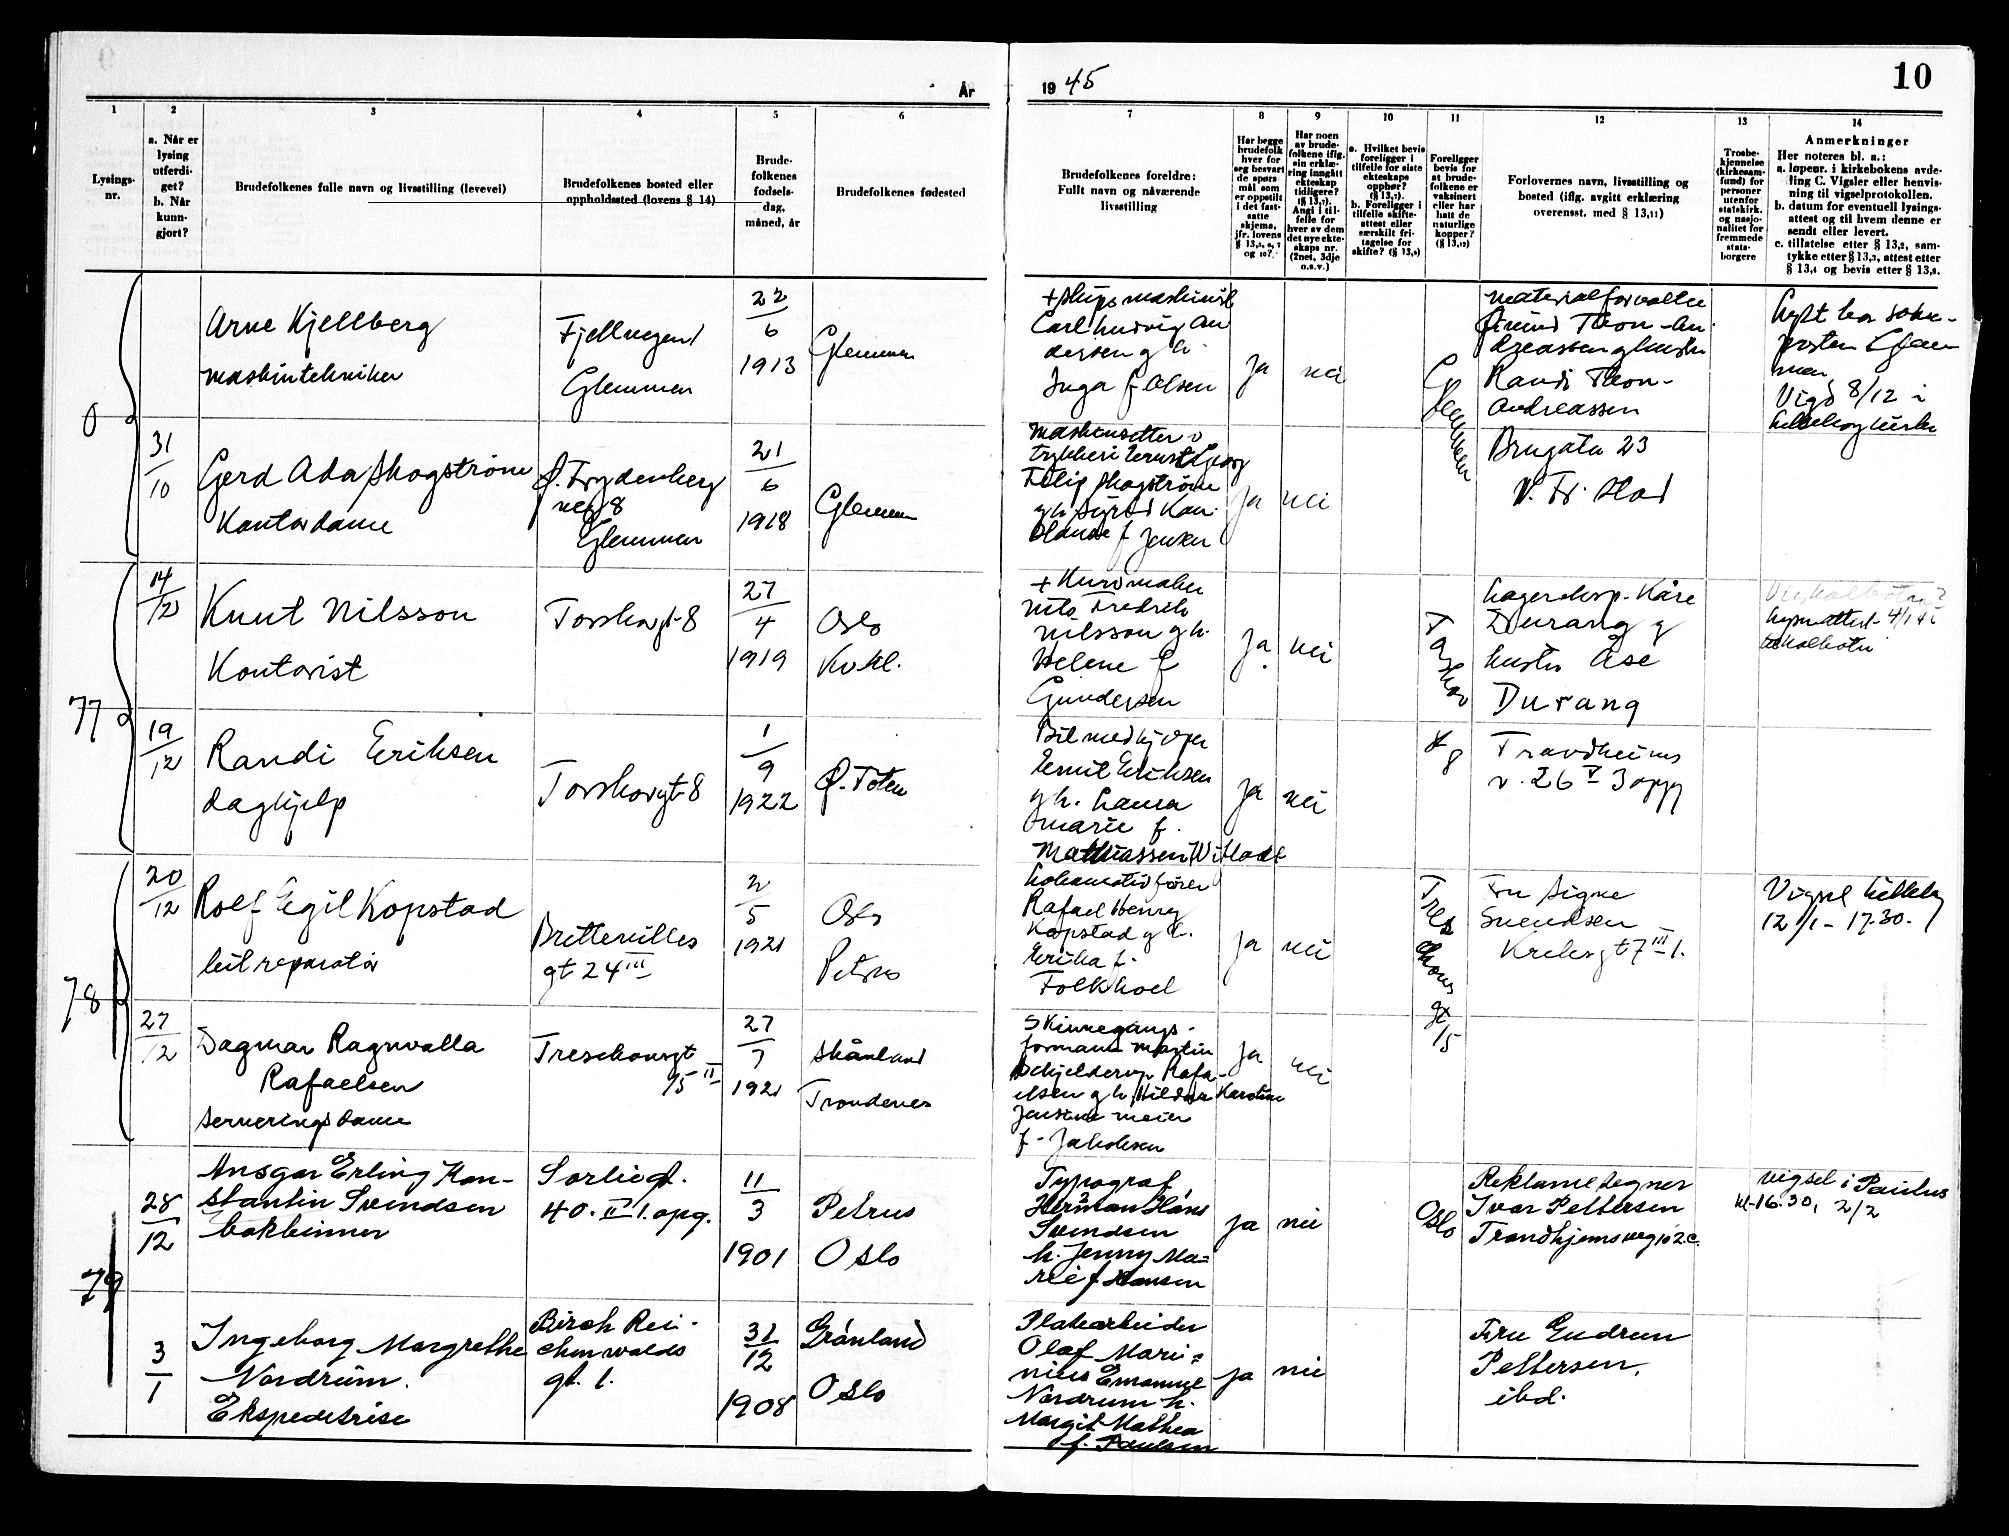 År
19 45
10
1
2
3
4
5
6
7
8
9
10
11
12
13
14
Lysings-
nr.
a. Når er
lysing
utferdi-
get?
b. Når
kunn-
gjort?
Brudefolkenes fulle navn og livsstilling (levevei)
Brudefolkenes bosted eller
oppholdssted (lovens § 14)
Brude-
folkenes
fødsels-
dag,
måned, år
Brudefolkenes fødested
Brudefolkenes foreldre:
Fullt navn og nåværende
livsstilling
Har begge
brudefolk
hver for
seg besvart
de spørs-
mål som
er oppstilt
i det fast-
satte
skjema,
jfr. lovens
og 10?
Har noen
av brude-
folkene iflg.
sin erklæ-
ring inngått
ekteskap
tidligere?
Angi i til-
felle for
hver av dem
det nye ekte-
skaps nr.
(2net, 3dje
o.s.v.)
a. Hvilket bevis
foreligger i
tilfelle for siste
ekteskaps
opphør?
b. Foreligger i
tilfelle skifte-
attest eller
særskilt fri-
tagelse for
Foreligger
bevis for
at brude-
folkene er
vaksinert
eller har
hatt de
naturlige
kopper?
(§ 13,12)
Forlovernes navn, livsstilling og
bosted (iflg. avgitt erklæring
overensst. med § 13,11)
Trosbe-
kjennelse
(kirkesam-
fund) for
personer
utenfor
statskirk.
og nasjo-
nalitet for
fremmede
stats-
borgere
Anmerkninger
Her noteres bl. a.:
a. løpenr. i kirkebokens avde-
ling C. Vigsler eller henvis-
ning til vigselprotokollen.
b. datum for eventuell lysings-
attest og til hvem denne er
sendt eller levert.
c. tillatelse etter § 13,2, sam-
tykke etter § 13,3, attest etter
§ 13,4 og bevis etter § 13,8.
0
Arne Kjellberg
maskintekniker
Glemmen
22
6
1913
Glemmen
+ skipsmaskinist
Carl Ludvig An
dersen g h.
Inga f Olsen
ja
nei
Glemmen
materialforvalter
Thon-An
dreassen g hustru
Randi Thon-
Andreassen
Vigd 8/12 i
31
10
Gerd Ada Skogstrøm
Kontordame
Ø. Frydenberg
vei 8
Glemmen
21
6
1918
Glemmen
maskinsetter v
trykkeri Ernst Georg
Filip Skogstrøm
f Jensen
ja
nei
Brugata 23
V. Fr. stad
77
14
12
Knut Nilsson
Kontorist
Torshovgt 8
27
4
1919
Oslo
Kv kl.
+ Kurvmaker
Nils Fredrik
Nilsson g h.
Helene f
Gundersen
ja
nei
Torshov
lagereksp. Kåre
Durang g
hustru Åse
Durang
19
12
Randi Eriksen
daghjelp
Torshovgt 8
1
9
1922
Ø. Toten
Bilmedhjelper
Emil Eriksen
g h. Laura
Marie f.
Mathiassen
ja
nei
gt 8
Trondheims
v. 26 V 3 opg
78
20
12
Rolf Egil Kopstad
bilreparatør
Brettevilles
gt 24 III
2
5
1921
Oslo
Petrus
Lokomotivfører
Rafael Henry
Kopstad g h.
Erika f.
Folkhoel
ja
nei
Treschows gt 15
Fru Signe
Svendsen
Krebsgt 7 III l.
Vigsel Lilleborg
12/1 - 17.30.
27
12
Dagmar Ragnvalla
Rafaelsen
serveringsdame
Treschowsgt
15 II
27
7
1921
Skånland
Trondenes
Skinnegangs-
formann Martin
Schjelderup Rafa-
elsen g h. Hildur Karoline
Jensine Meier
f. Jakobsen
ja
nei
79
28
12
Ansgar Erling Kon-
stantin Svendsen
bokbinner
Sorliegt.
40. II l. opg.
11
3
1901
Petrus
Oslo
Typograf
Herman Hans
Svendsen
h. Jenny Ma=
rie f Hansen
ja
nei
Oslo
Reklametegner
Ivar Pettersen
Trondhjemsveg 102.c.
Vigsel i Paulus
kl. 16.30, 2/2
3
1
Ingeborg Margrethe
Nordrum.
Ekspeditrise
Birch Rei-
chenwalds
gt. 1.
31
12
1908
Grønland
Oslo
Platearbeider
Olaf Mari=
nius Emanuel
Nordrum h.
Margit Mathea
f. Paulsen
ja
nei
Fru Gudrun
Pettersen.
ibd.